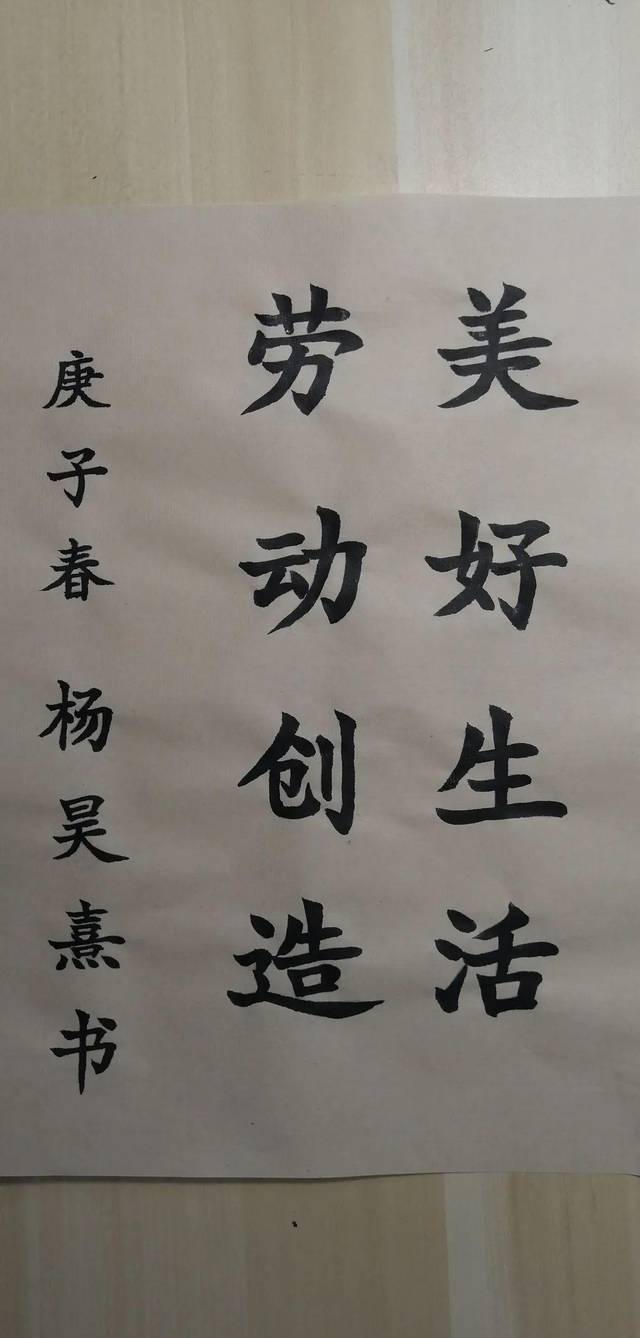 美好生活
劳动创造
庚子春 杨昊熹书